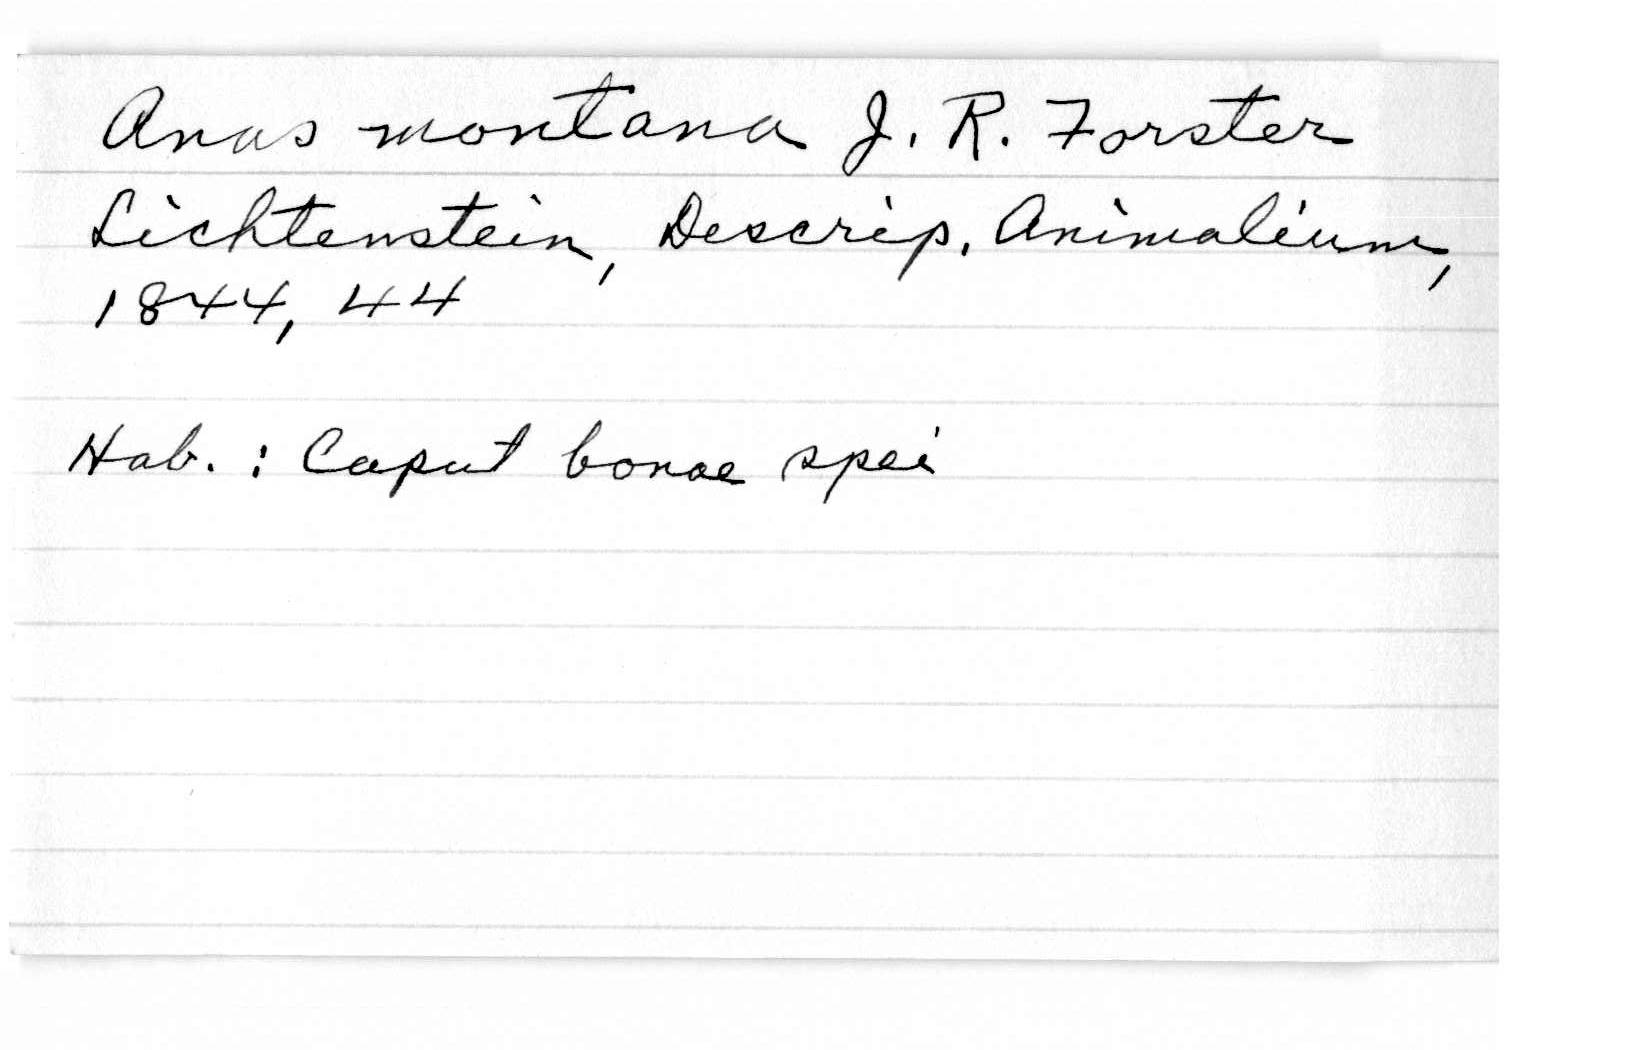 Anas montana J. R. Forster
Lichtenstein, Descrip. Animalium,
1844, 44
Hab. : Caput bonae spei